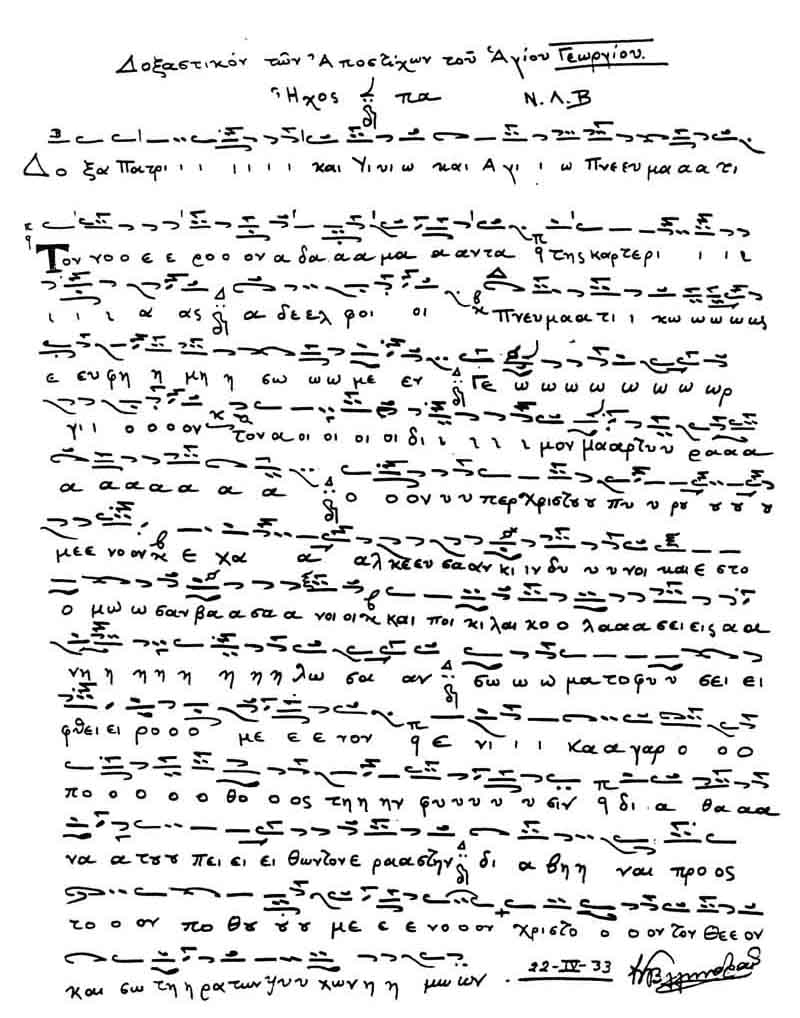 Δοξαστικόν τῶν Ἀποστίχων τοῦ Ἁγίου Γεωργίου.
Ἦχος δι πα Ν.Λ.Β
Δ ο ξα Πατρι ι ι ι ι ι ι και Υι υι ω και Α γι ι ω Πνε ευ μα α α τι
Τον νο ο ε ε ρο ο ον α δα α α μα α αν τα της καρ τε ρι ι ι ι
ι ι ι α ας α δε ελ φοι οι πνευ μα α τι ι κω ω ω ω ως
ε ευ φη η μη η σω ω ω με εν Γε ω ω ω ω ω ω ω ωρ
γι ι ο ο ο ον τον α οι οι οι οι δι ι ι ι ι μον μα αρ τυ υ ρα α α
α α α α α α α ο ο ον υ υ περ Χριστου ου πυ υ ρου ου ου ου
με ε νο ον ε χα α αλ κε ευ σα αν κι ιν δυ υ υ νοι και ε στο
ο μω ω σαν βα α σα α νοι οι και ποι κι λαι κο ο λα α α σει εις α α
νη η η η η η η η λω σα αν σω ω ω μα το φυ υ σει ει
φθει ει ρο ο ο με ε ε νον ε νι ι ι κα α γαρ ο ο ο
πο ο ο ο ο θο ο ος τη η ην φυ υ υ υ υ σιν δι α θα α α
να α του ου πει ει ει θων τον ε ρα α στην δι α βη η ναι προ ος
το ο ον πο θου ου ου με ε ε νο ον χριστο ο ο ον τον Θε ε ον
και σω τη η ρα των ψυ υ χων η η μω ων . 22-IV-33